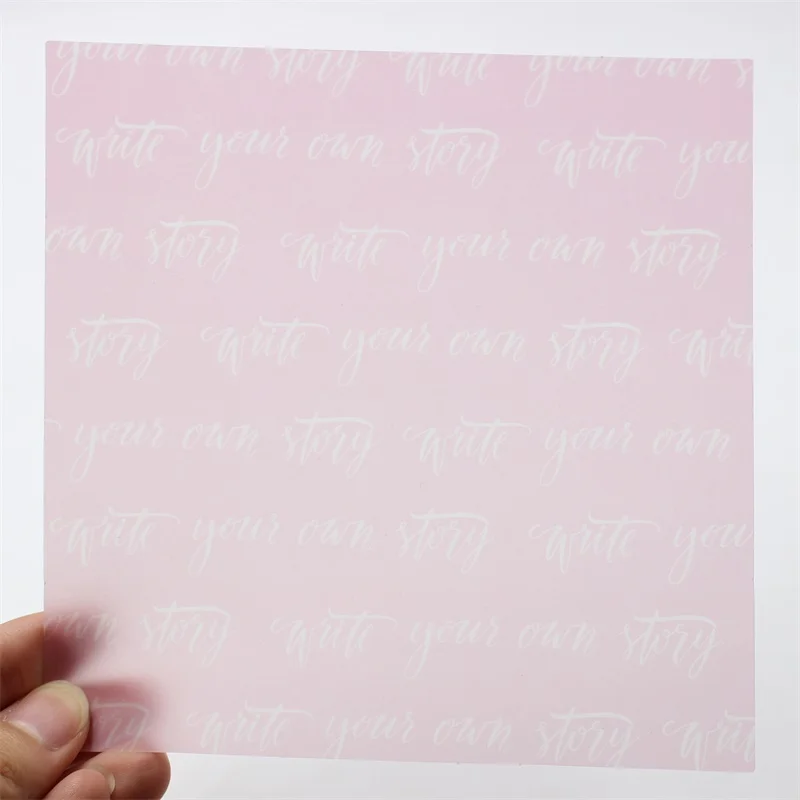 your own story write your own s
write your own story write you
own story write your own story
story write your own story writ
your own story write your own
write your own story write you
own story write your own story
story write your own story writ